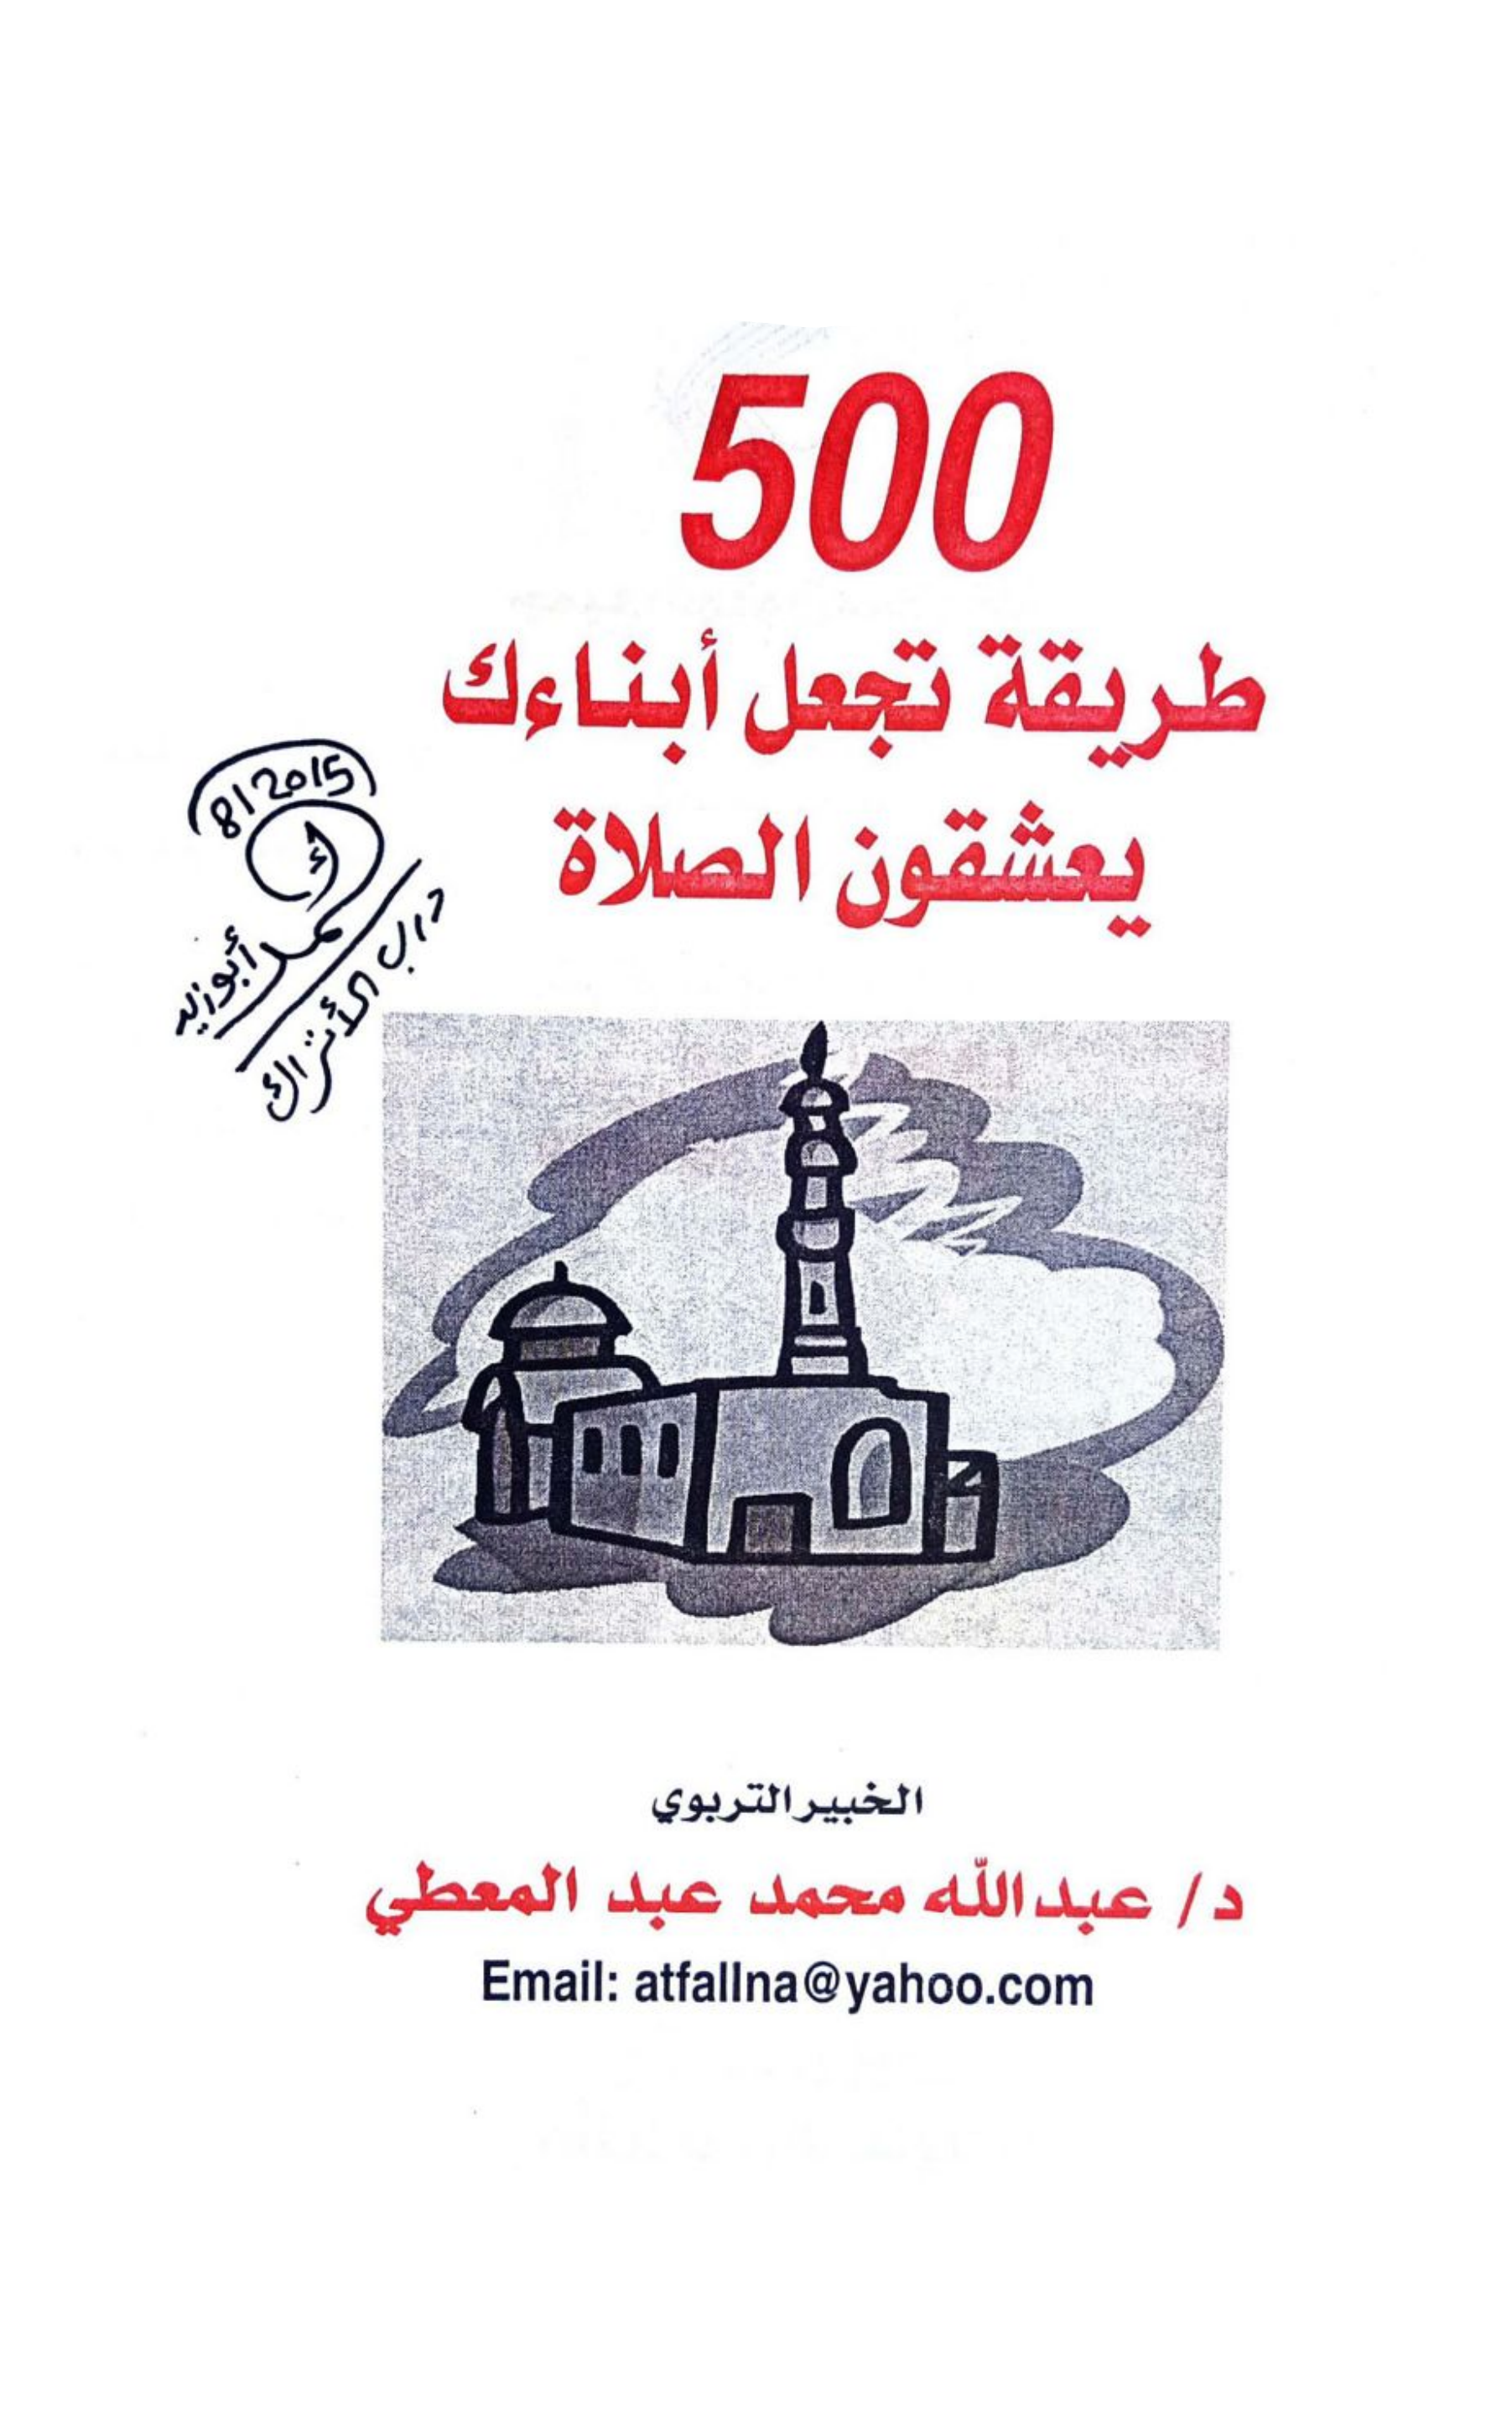 500
طريقة تجعل أبناءك
يعشقون الصلاة
8/2015
أحمد أبوزيد
درب الأتراك
الخبير التربوي
د/ عبدالله محمد عبد المعطي
Email: atfallna@yahoo.com